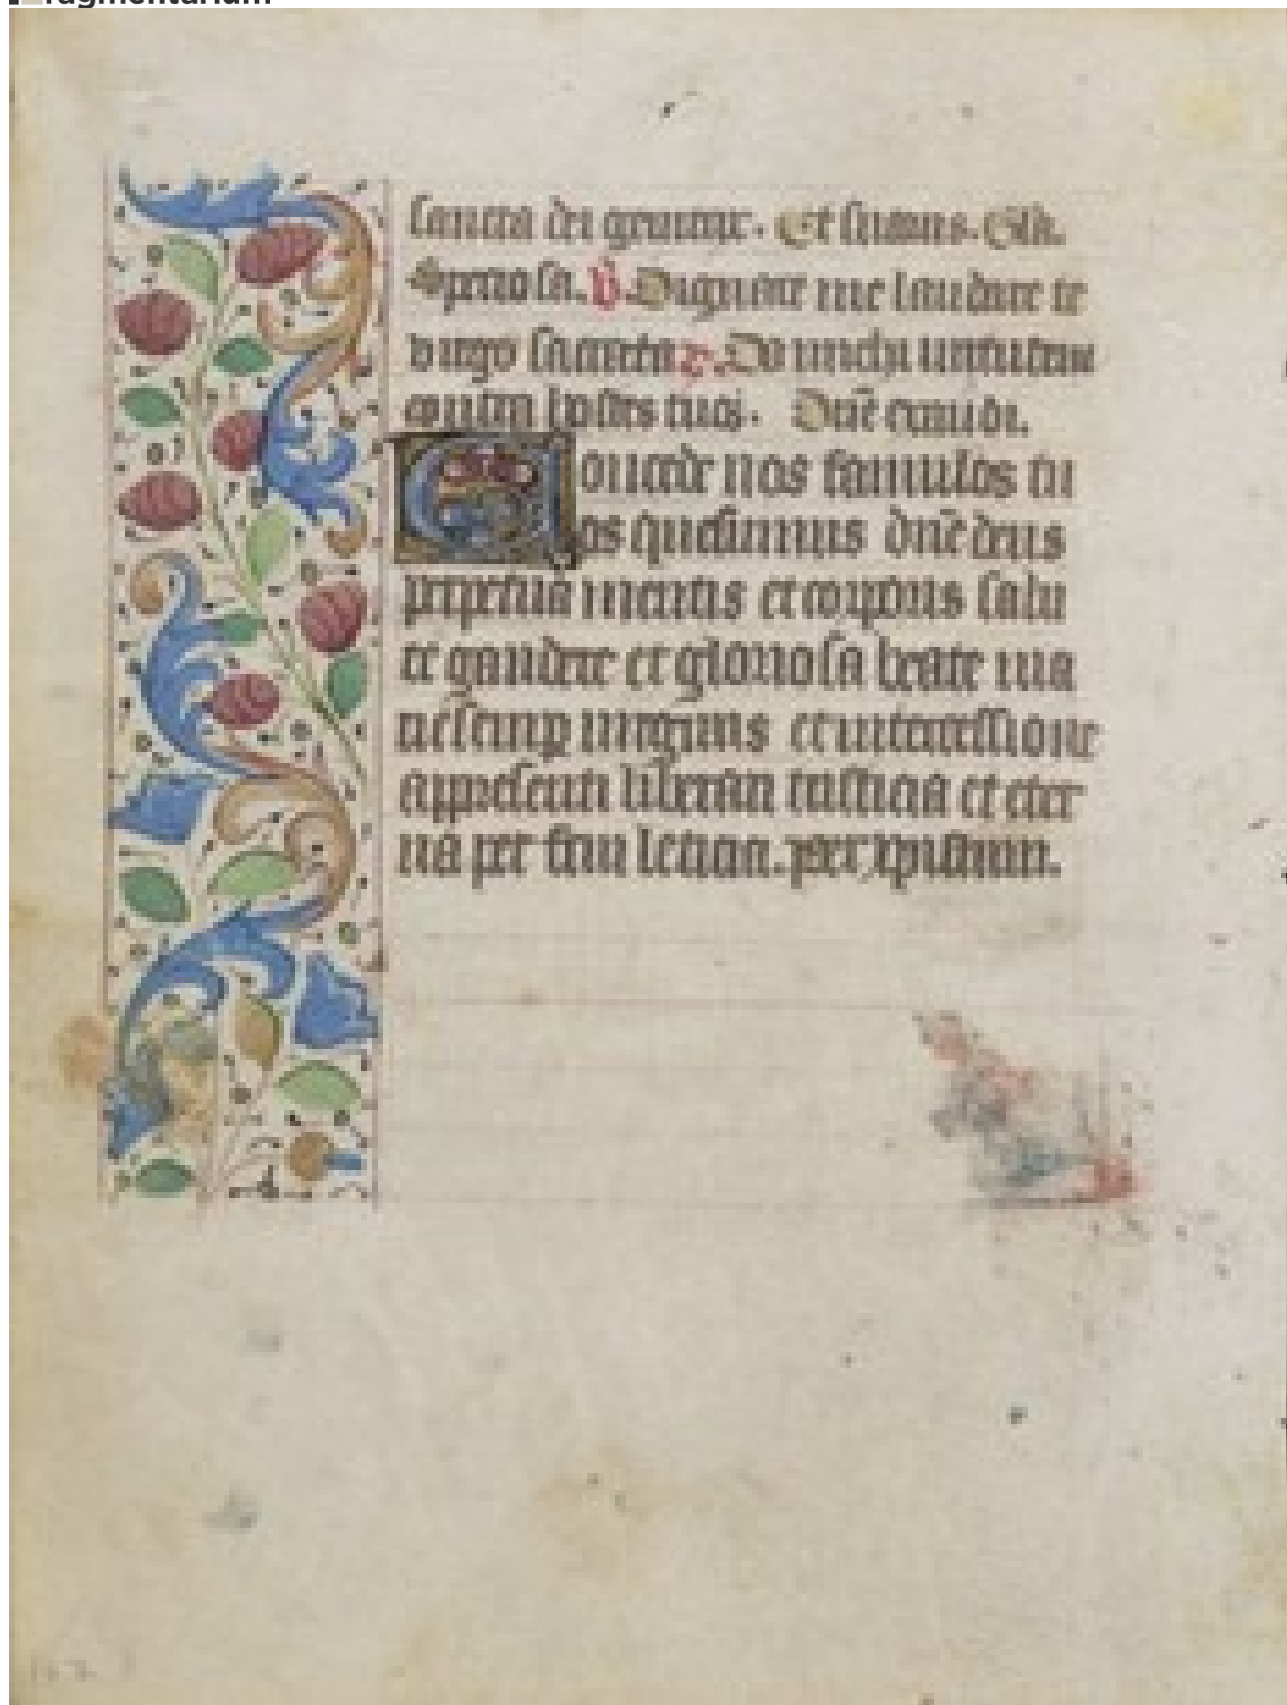 fragmentarium
sancta dei genitrix. Et suavis. Gl̄a.
Speciosa. v̄. Dignare me laudare te
virgo sacrata r. Da michi virtutem
contra hostes tuos. Dn̄e exaudi.
Concede nos famulos tu
os quesumus dn̄e deus
perpetua mentis et corporis salu
te gaudere et gloriosa beate ma
rie semp virginis et intercessione
a presenti liberari tristicia et eter
na per frui leticia. per xpistum.